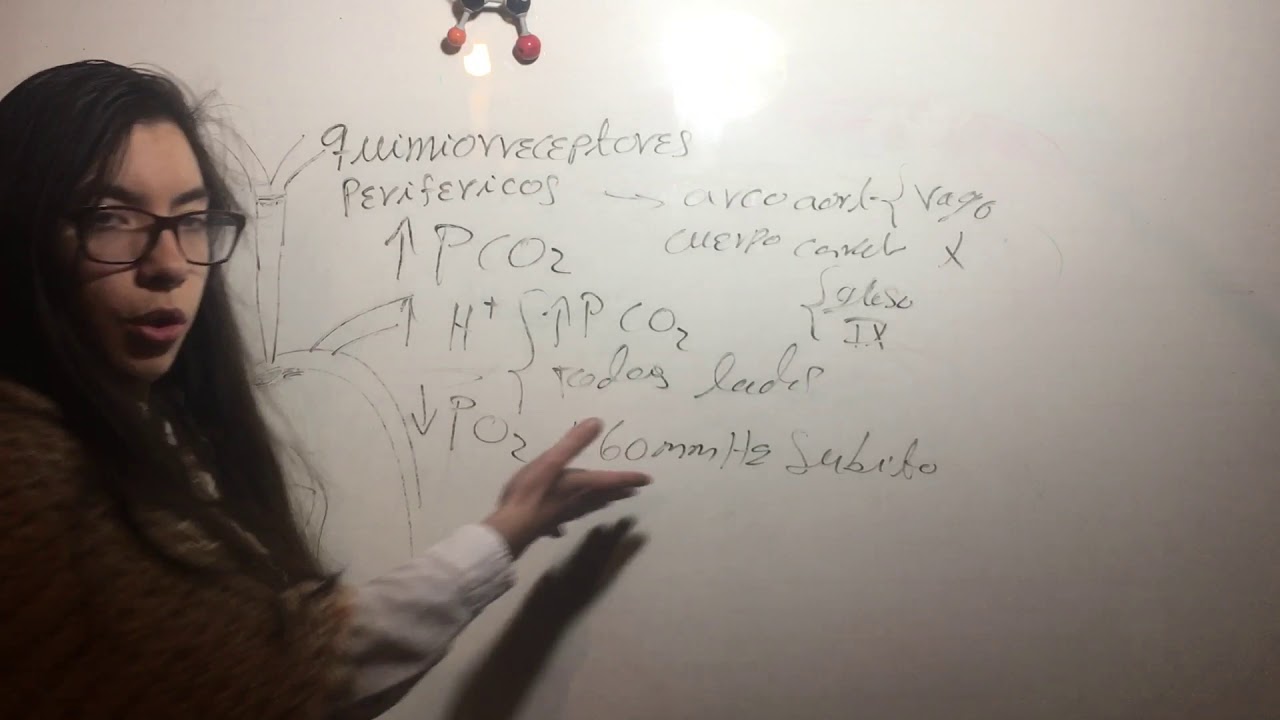 quimiorreceptores
perifericos → arco aort. } vago
cuerpo carot X
↑ PCO2
{ gloso
IX
↑ H+ { ↑ PCO2
todos lados
↓ PO2 60mmHg subito